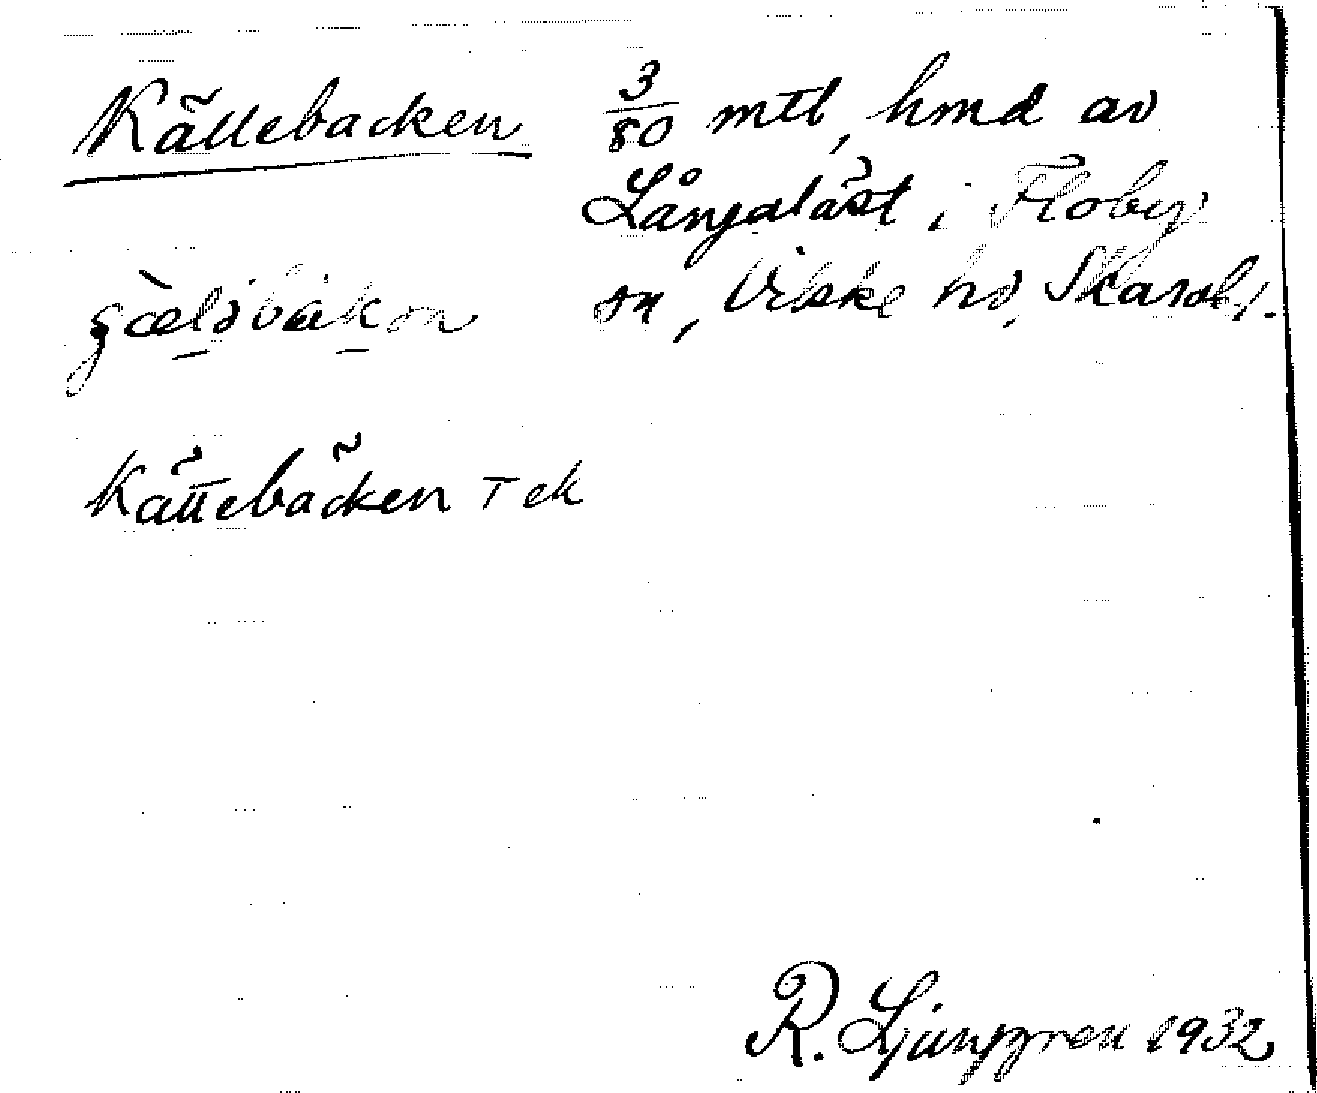 Källebacken 3/80 mtl, hmd av
Långaläst i Floby
sn, Vilske hd, Skarabl.
Källebäcken T ek
R. Ljunggren 1932